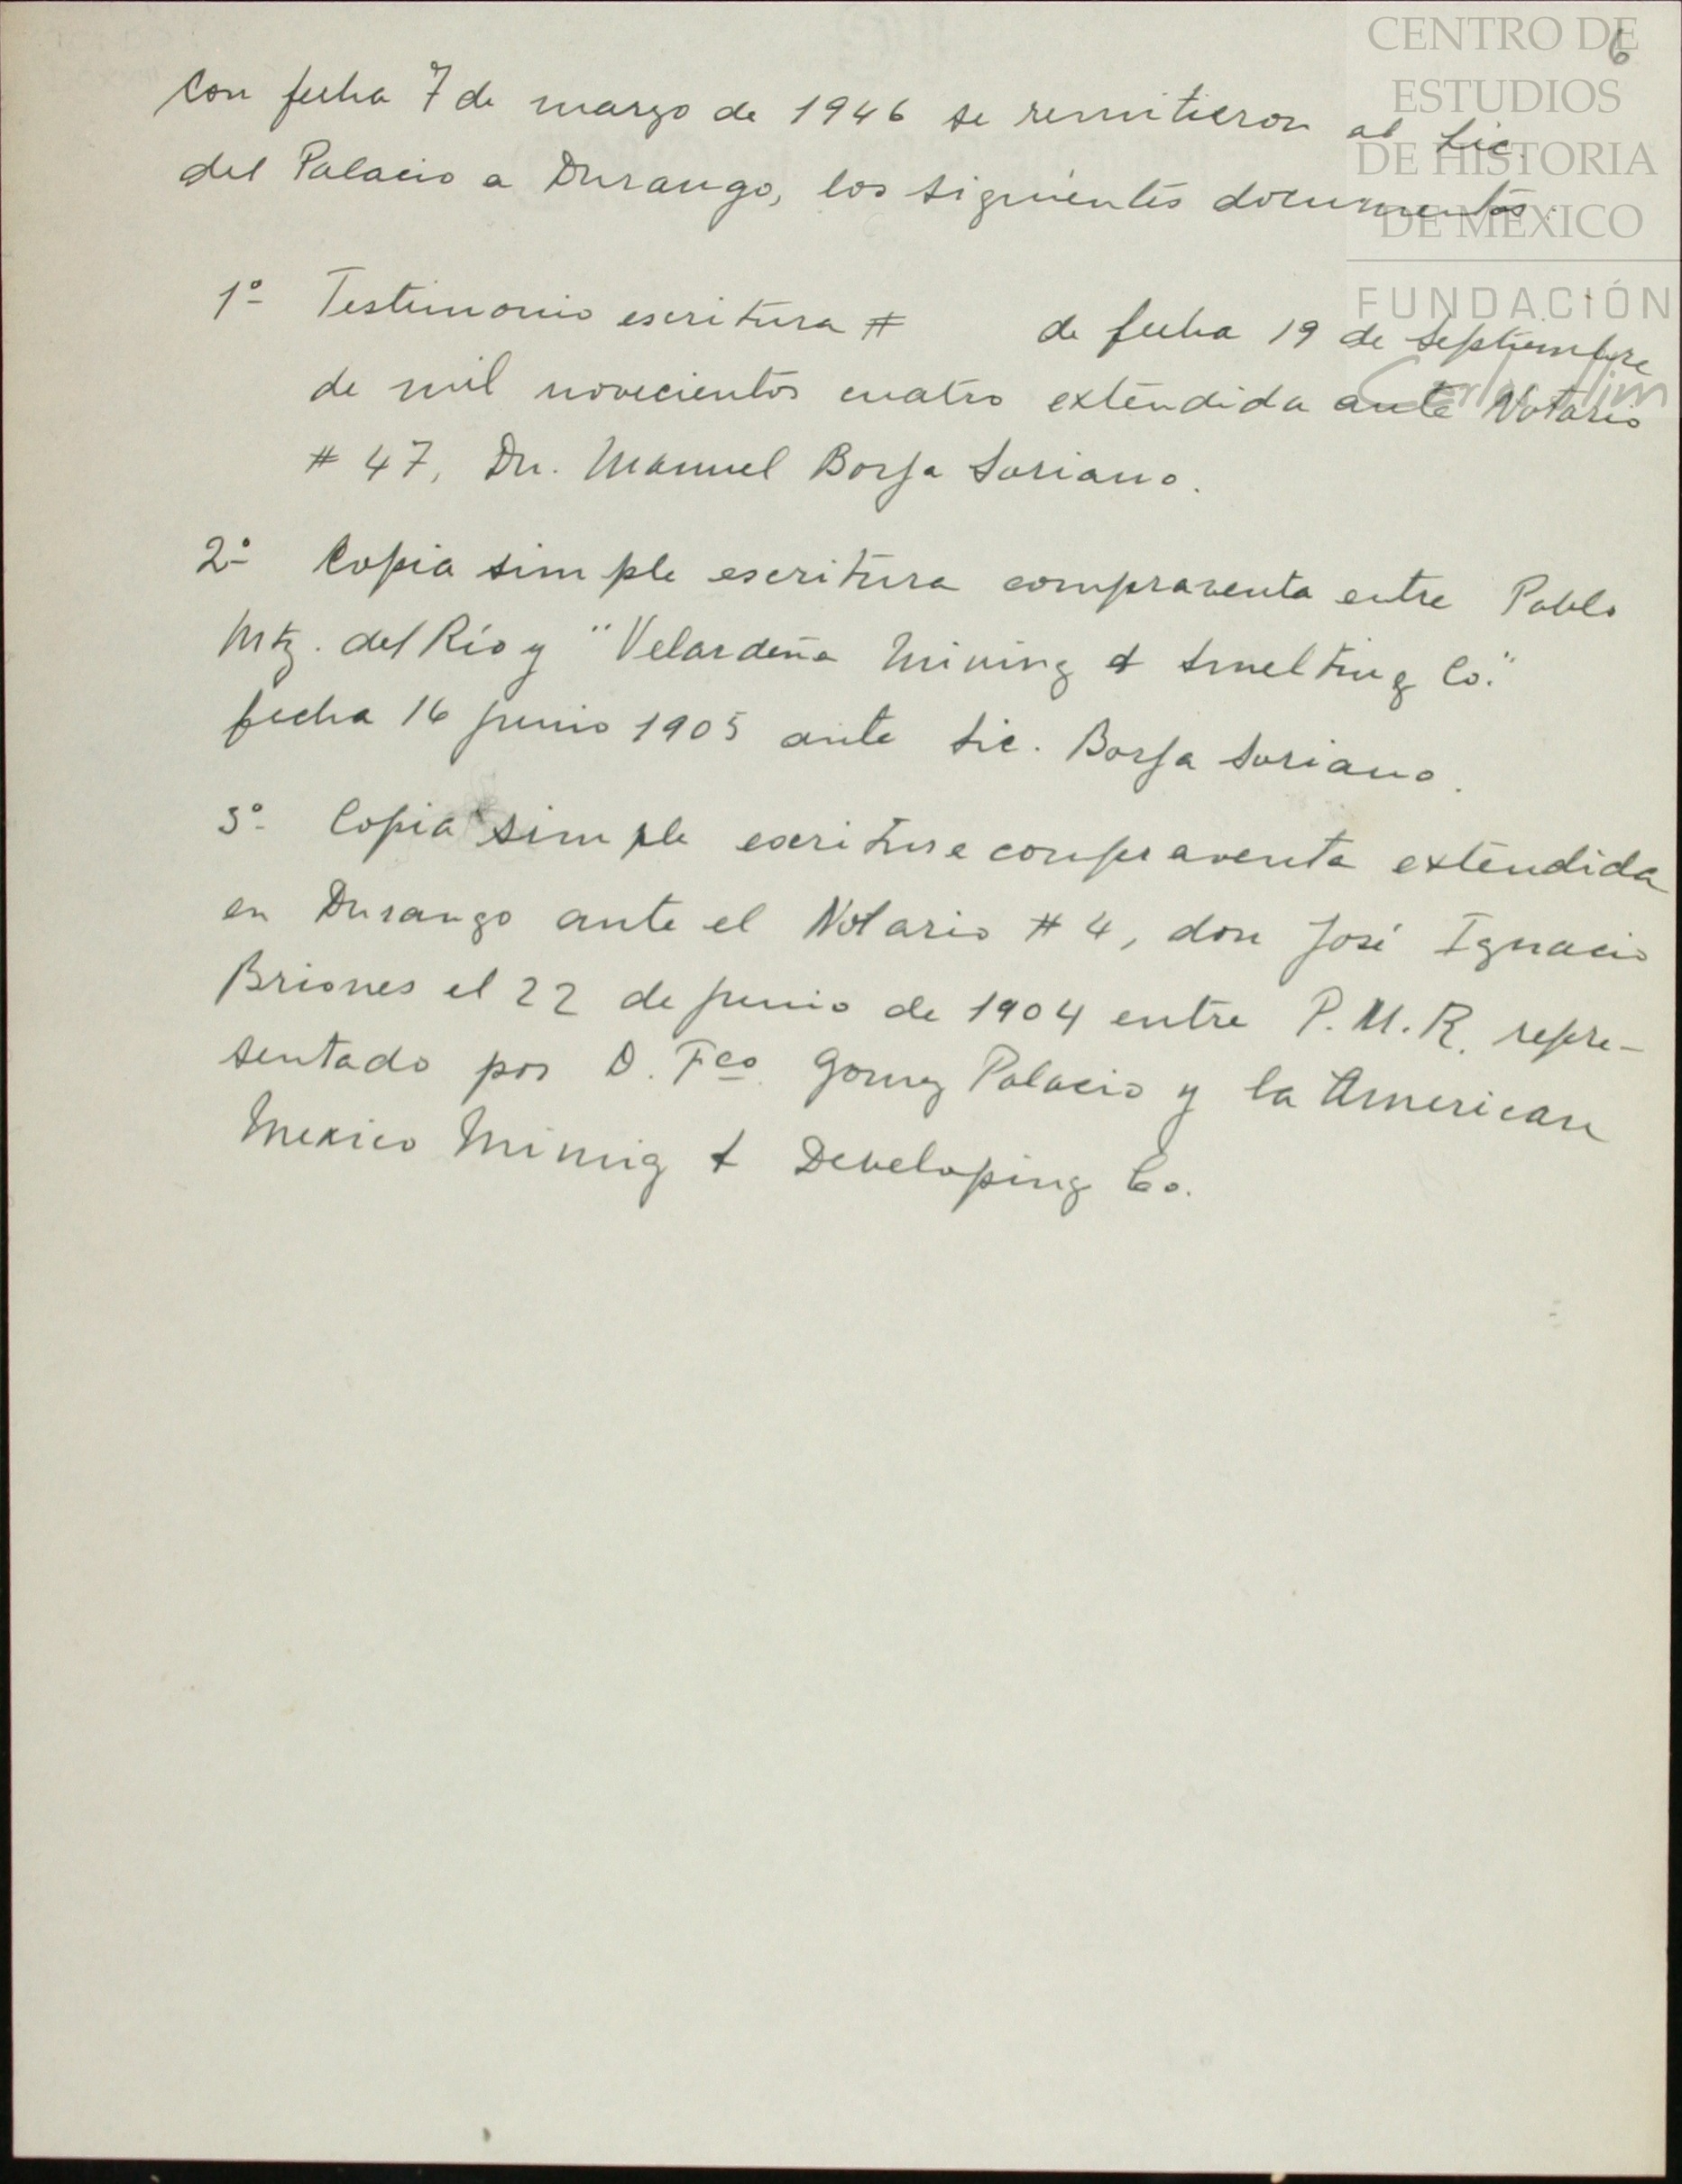 CENTRO DE
ESTUDIOS
DE HISTORIA
DE MÉXICO
FUNDACIÓN
Carlos Slim
6
Con fecha 7 de marzo de 1946 se remitieron al Lic.
del Palacio a Durango, los siguientes documentos:
1º- Testimonio escritura # de fecha 19 de Septiembre
de mil novecientos cuatro extendida ante Notario
# 47, Dn. Manuel Borja Soriano.
2º- Copia simple escritura compraventa entre Pablo
Mtz. del Río y "Velardeña Mining & Smelting Co."
fecha 16 junio 1905 ante Lic. Borja Soriano.
3º- Copia simple escritura compraventa extendida
en Durango ante el Notario # 4, don José Ignacio
Briones el 22 de junio de 1904 entre P.M.R. repre-
sentado por D. Fco. Gomez Palacio y la American
Mexico Minnig & Developing Co.